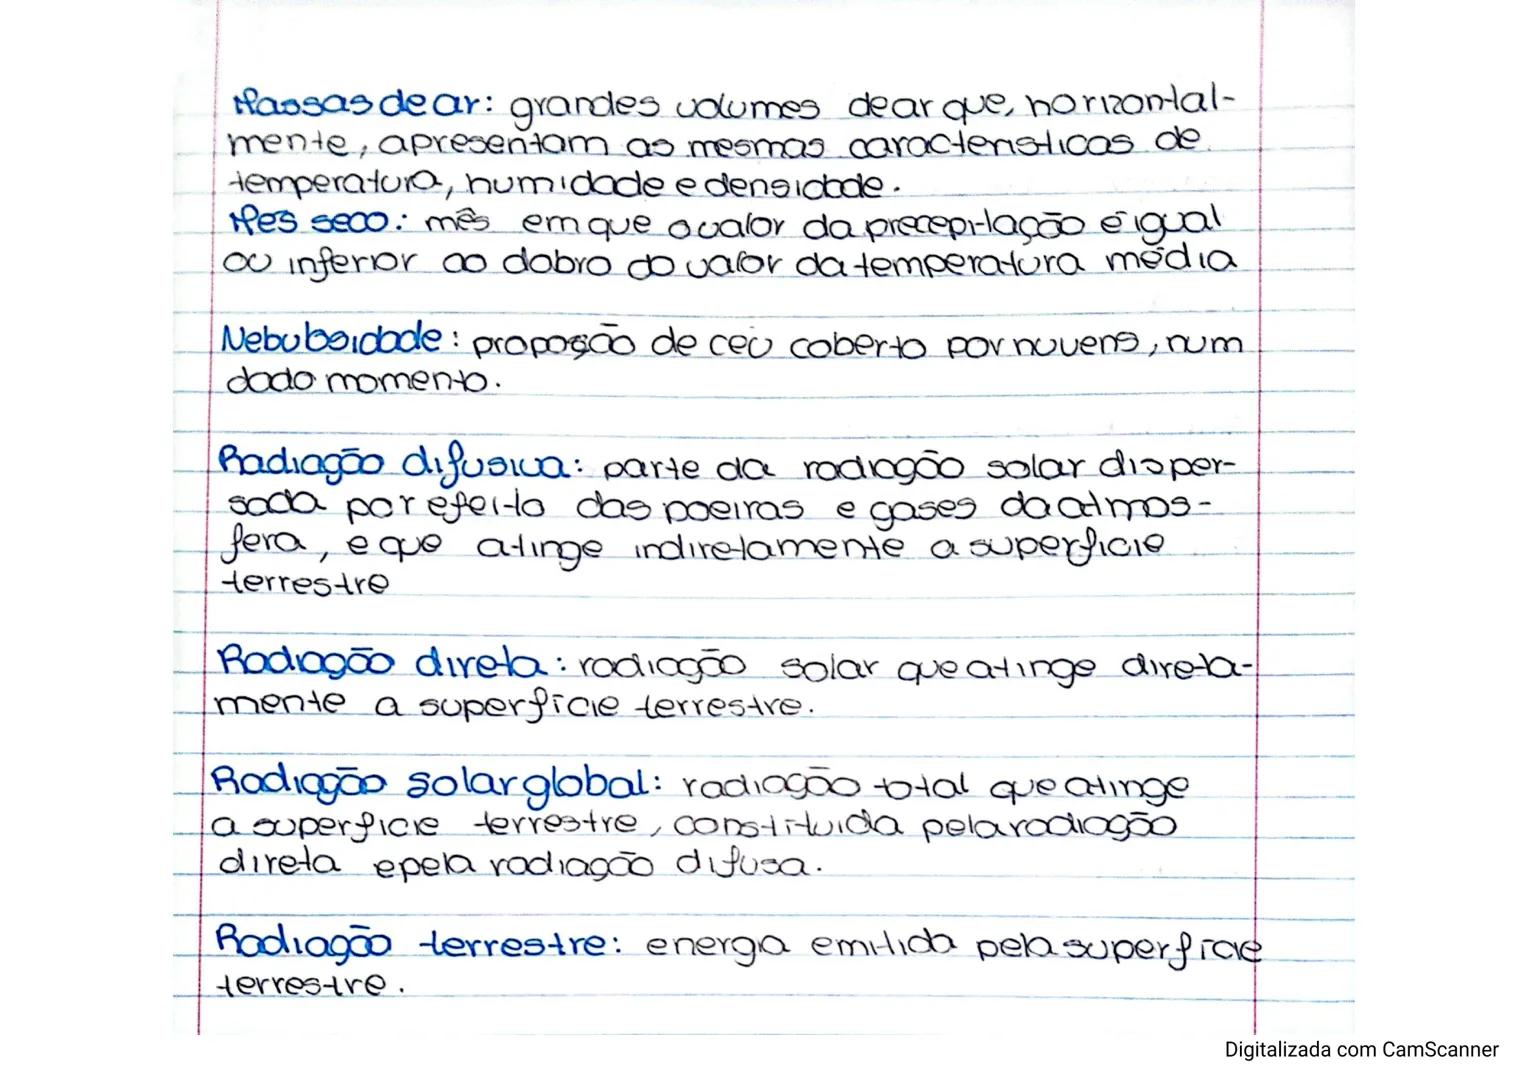 Massas de ar: grandes volumes de ar que, horizontal-
mente, apresentam as mesmas características de
temperatura, humidade e densidade.
Mês seco: mês em que o valor da precepitação é igual
ou inferior ao dobro do valor da temperatura média
Nebulosidade: proposção de céu coberto por nuvens, num
dado momento.
Radiação difusiva: parte da radiação solar disper-
sada por efeito das poeiras e gases da atmos-
fera, e que atinge indiretamente a superfície
terrestre
Radiação direta: radiação solar que atinge direta-
mente a superfície terrestre.
Radiação solar global: radiação total que atinge
a superfície terrestre, constituída pela radiação
direta e pela radiação difusa.
Radiação terrestre: energia emitida pela superfície
terrestre.
Digitalizada com CamScanner